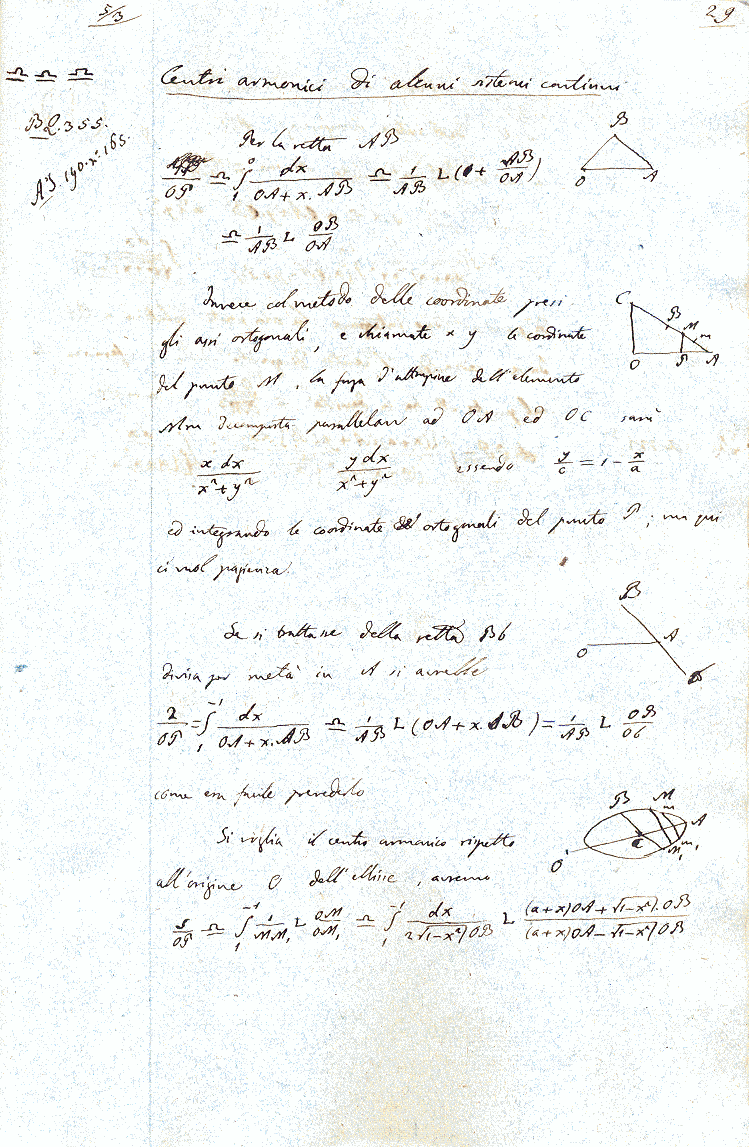 5/3
29
♎ ♎ ♎
B2.355.
Centri armonici di alcuni sistemi continui
Per la retta AB
B
O A
1/OP ♎ ∫ dx/(OA + x.AB) ♎ 1/AB L (1 + AB/OA)
♎ 1/AB L OB/OA
Invece col metodo delle coordinate presi
gli assi ortogonali, e chiamate x y le cordinate
del punto M, la forza d'attrazione dell'elemento
C B M m
O P A
Mm decomposta parallelam ad OA ed OC sarà
x dx/(x²+y²) y dx/(x²+y²) essendo y/c = 1 - x/a
ed integrando le coordinate ortogonali del punto P; ma qui
ci vuol pazienza.
Se si trattasse della retta Bb
B
O A
b
divisa per metà in A si avrebbe
2/OP = ∫ dx/(OA + x.AB) ♎ 1/AB L (OA + x.AB) = 1/AB L OB/Ob
come era facile prevederlo
Si voglia il centro armonico rispetto
B M m A
O C M₁ m₁
all'origine O dell'ellisse, avremo
S/OP ♎ ∫ 1/MM₁ L OM/OM₁ ♎ ∫ dx/(2√(1-x²)OB) L ((a+x)OA + √(1-x²).OB)/((a+x)OA - √(1-x²)OB)